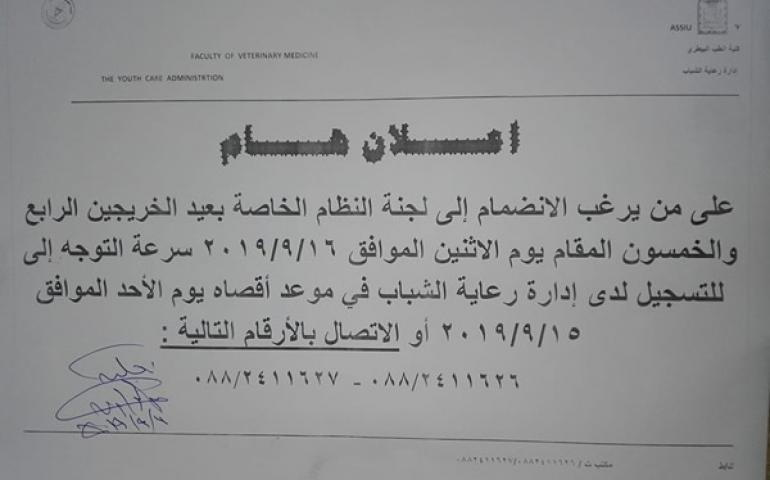 ASSIU
كلية الطب البيطري
FACULTY OF VETERINARY MEDICINE
إدارة رعاية الشباب
THE YOUTH CARE ADMINISTRTION
اعلان هام
على من يرغب الانضمام إلى لجنة النظام الخاصة بعيد الخريجين الرابع
والخمسون المقام يوم الاثنين الموافق ٢٠١٩/٩/١٦ سرعة التوجه إلى
للتسجيل لدى إدارة رعاية الشباب في موعد أقصاه يوم الأحد الموافق
٢٠١٩/٩/١٥ أو الاتصال بالأرقام التالية :
٠٨٨/٢٤١١٦٢٦ - ٠٨٨/٢٤١١٦٢٧
مكتب ت / ٠٨٨٢٤١١٦٢٦/٠٨٨٢٤١١٦٢٧